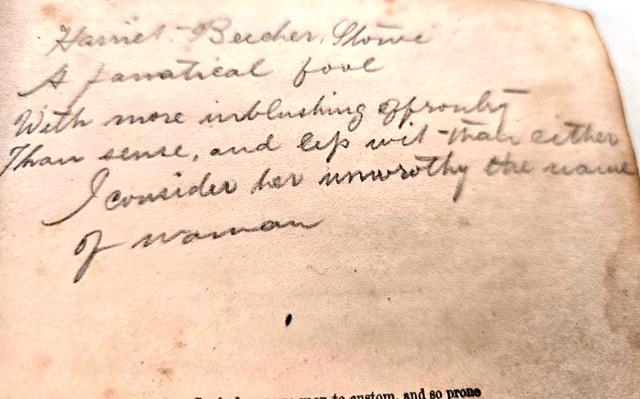 Harriet Beecher Stowe
A fanatical fool
With more inblushing effrontry
Than sense, and less wit than either
I consider her unwrothy the name
of woman
to custom, and so prone